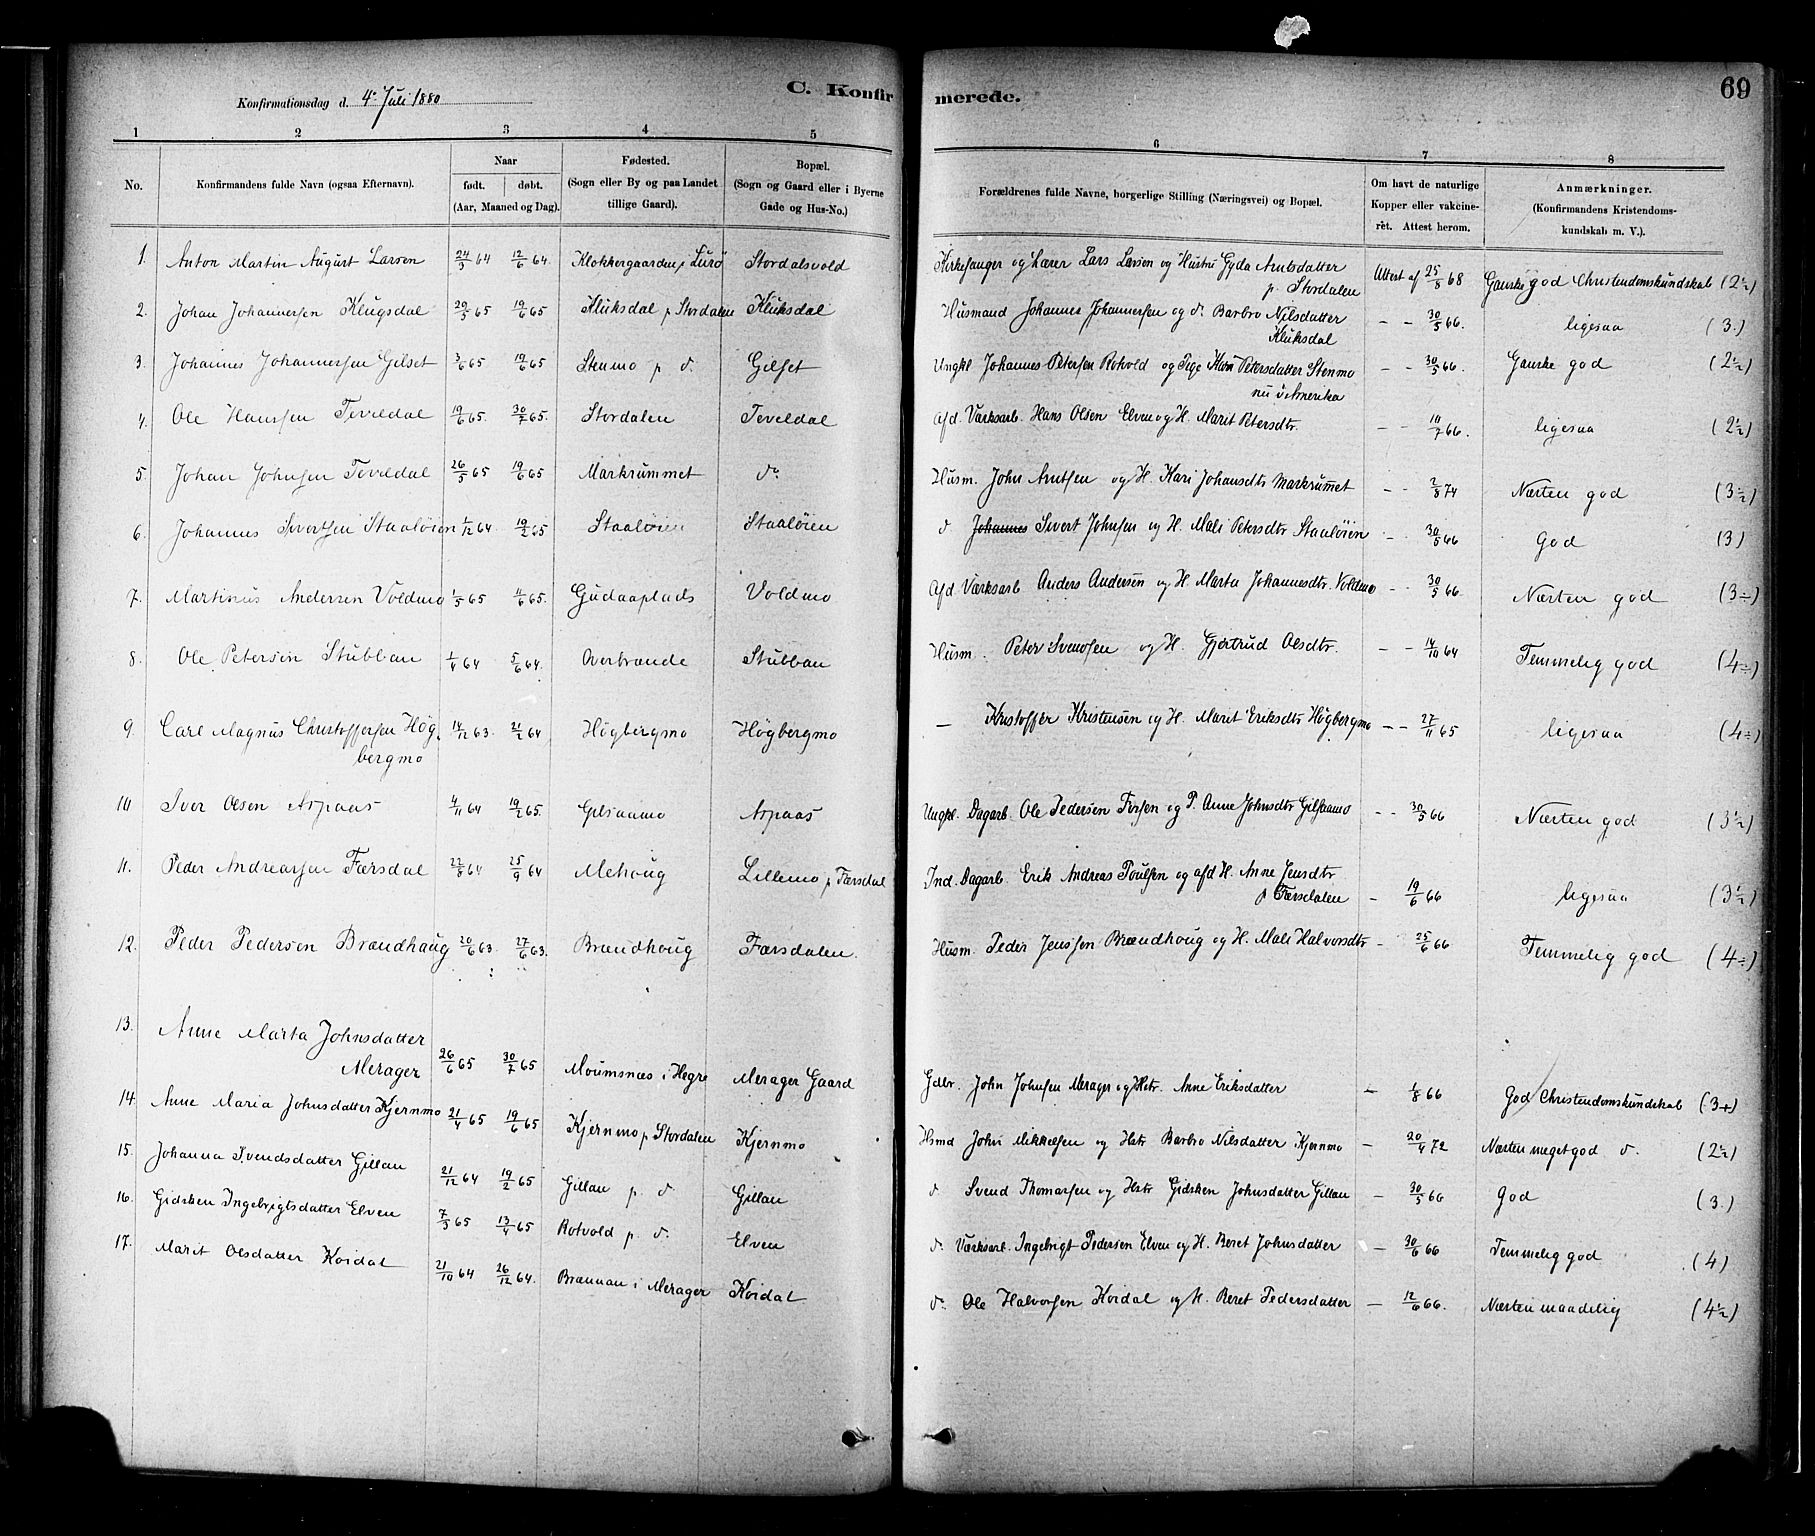 69
Konfirmationsdag d. 4de Juli 1880
C. Konfirmerede.
1 2 3 4 5 6 7 8
No. Konfirmandens fulde Navn (ogsaa Efternavn). Naar født. døbt. (Aar, Maaned og Dag). Fødested. (Sogn eller By og paa Landet tillige Gaard). Bopæl. (Sogn og Gaard eller i Byerne Gade og Hus-No.) Forældrenes fulde Navne, borgerlige Stilling (Næringsvei) og Bopæl. Om havt de naturlige Kopper eller vakcineret. Attest herom. Anmærkninger. (Konfirmandens Kristendomskundskab m. V.).
1. Anton Martin August Larsen 24/3 64 12/6 64. Klokkergaarden p. Lurø Stordalsvold Kirkesanger og Lærer Lars Larsen og Hustru Gyda Arntsdatter p Stordalen Attest af 25/8 68 Ganske god Christendomskundskab (2½)
2. Johan Johannersen Klugsdal 20/5 65 19/6 65 Kluksdal p Stordalen Kluksdal Husmand Johannes Johannersen og d. Barbro Nilsdatter Kluksdal - - 30/5 66. ligesaa (3.)
3. Johannes Johannersen Gilset 3/6 65 19/6 65 Stenmo p d. Gilset Ungkl Johannes Petersen Rotvold og Pige Petersdatter Stenmo nu i Amerika - - 30/5 66. Ganske god (2½)
4. Ole Hansen Teveldal 19/6 65. 30/7 65. Stordalen Teveldal Afd. Værksarb. Hans Olsen Elven og H. Marit Petersdtr. - - 11/7 66. ligesaa (2½)
5. Johan Johnsen Teveldal 26/5 65 19/6 65 Markrummet do Husm. John Arntsen og H. Kari Johansdtr Markrummet - - 2/8 74 Næsten god (3½)
6. Johannes Sivertsen Staaløien 1/12 64 19/2 65 Staaløien Staaløien d Johannes Sivert Johnsen og H. Mali Petersdtr Staaløien - - 30/5 66 god (3)
7. Martinus Andersen Voldmo 1/5 65 11/6 65. Gudaaplads Voldmo Afd. Værksarb Anders Andersen og H. Marta Johannesdtr. Voldmo - - 30/5 66. Næsten god (3÷)
8. Ole Petersen Stubban 1/4 64 5/6 64. Overbrænde Stubban Husm. Peter Svendsen og H. Gjertrud Olsdtr. - - 14/10 64 Temmelig god (4÷)
9. Carl Magnus Christoffersen Högbergmo 14/12 63. 21/2 64 Högbergmo Högbergmo - Kristoffer Kristensen og H. Marit Eriksdtr Högbergmo - - 27/11 65 ligesaa (4÷)
10 Iver Olsen Aspaas 4/11 64 19/2 65. Gilsaamo Aspaas Ungkl. Dagarb. Ole Pedersen Forsen og P. Anne Johnsdtr Gilsaamo - - 30/5 66 Næsten god (3½)
11. Peder Andreassen Færsdal 22/8 64 25/9 64 Mehoug Lillemo p Færsdal Ind. Dagarb. Erik Andreas Poulsen og afd H. Anne Jensdtr. p Færsdalen - 19/6 66 ligesaa (3½)
12. Peder Pedersen Brændhaug 20/6 63. 27/6 63. Brændhoug Færsdalen. Husm. Peder Jenssen Brændhoug og H. Mali Halvorsdtr - 25/6 66 Temmelig god (4÷)
13. Anne Marta Johnsdatter Merager 26/6 65 30/7 65 Moumsnæs i Hegre Merager Gaard Gdbr. John Johnsen Merager og Hstr. Anne Eriksdatter - 1/8 66 God Christendomskundskab (3+)
14. Anne Maria Johnsdatter Kjernmo 21/4 65 19/6 65 Kjernmo p Stordalen Kjernmo Hsmd John Mikkelsen og Hstr Barbro Nilsdatter Kjernmo - 20/4 72 Næsten meget god d. (2½)
15. Johanna Svendsdatter Gillan 21/12 64 19/2 65 Gillan p. d Gillan d. Svend Thomassen og Hstr Gidsken Johnsdatter Gillan - 30/5 66 God (3.)
16. Gidsken Ingebrigtsdatter Elven 7/3 65 13/4 65 Rotvold p d. Elven d. Værksarb. Ingebrigt Pedersen Elven og H. Beret Johnsdatter - 30/6 66 Temmelig god (4)
17. Marit Olsdatter Koidal 21/10 64 26/12 64. Brænnan i Merager Koidal d. Ole Halvorsen Koidal og H. Beret Pedersdatter - 12/6 66. Næsten maadelig (4½)